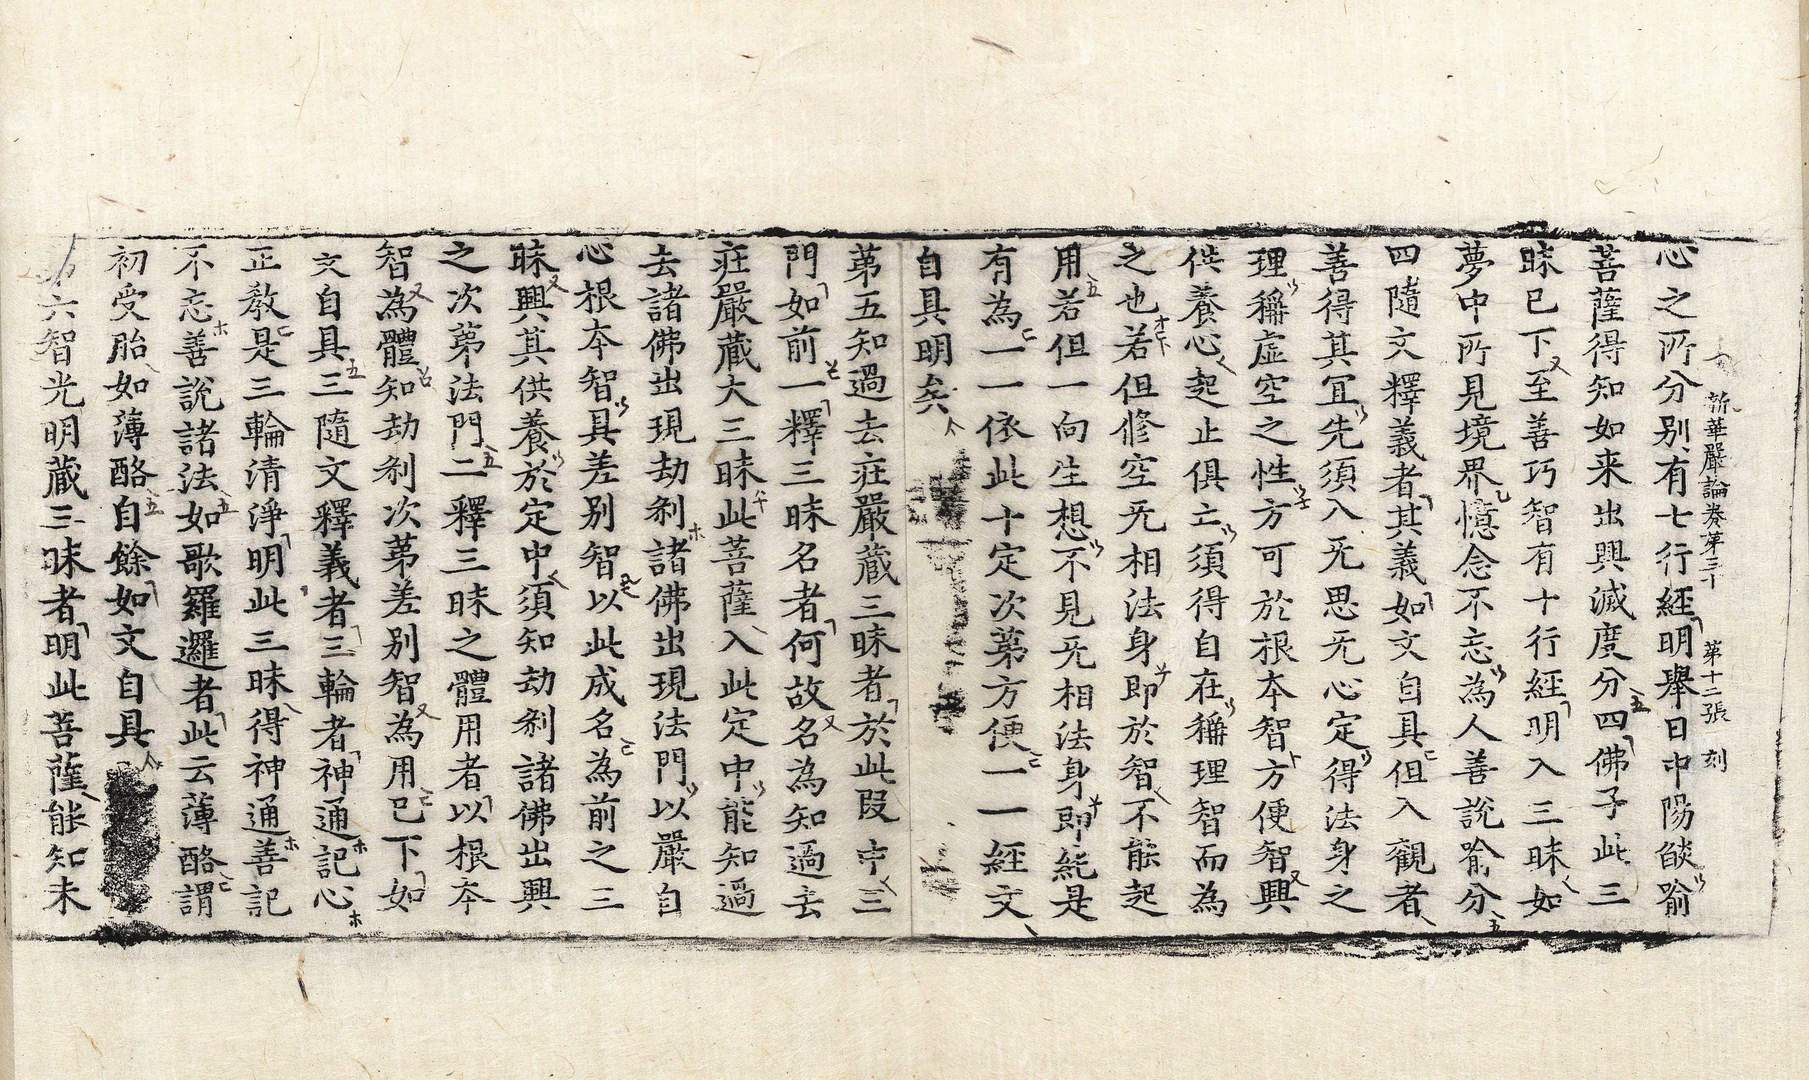 新華嚴論卷第三十 第十二張 刻
心之所分別有七行經明舉日中陽𦦨喻
菩薩得知如来出興滅度分四佛子此三
昧已下至善巧智有十行經明入三昧如
夢中所見境界憶念不忘為人善說喻分
四隨文釋義者其義如文自具但入觀者
善得其冝先須入无思无心定得法身之
理稱虛空之性方可於根夲智方便智興
供養心起止俱亡須得自在稱理智而為
之也若但修空无相法身即於智不能起
用若但一向生想不見无相法身即純是
有為一一依此十定次苐方便一一經文
自具明矣
苐五知過去莊嚴藏三昧者於此叚中三
門如前一釋三昧名者何故名為知過去
莊嚴藏大三昧此菩薩入此定中能知過
去諸佛出現劫剎諸佛出現法門以嚴自
心根夲智具差別智以此成名為前之三
昧興其供養於定中須知劫剎諸佛出興
之次苐法門二釋三昧之體用者以根夲
智為體知劫剎次苐差別智為用已下如
文自具三隨文釋義者三輪者神通記心
正教是三輪清淨明此三昧得神通善記
不忘善說諸法如歌羅邏者此云薄酪謂
初受胎如薄酪自餘如文自具
苐六智光明藏三昧者明此菩薩能知未